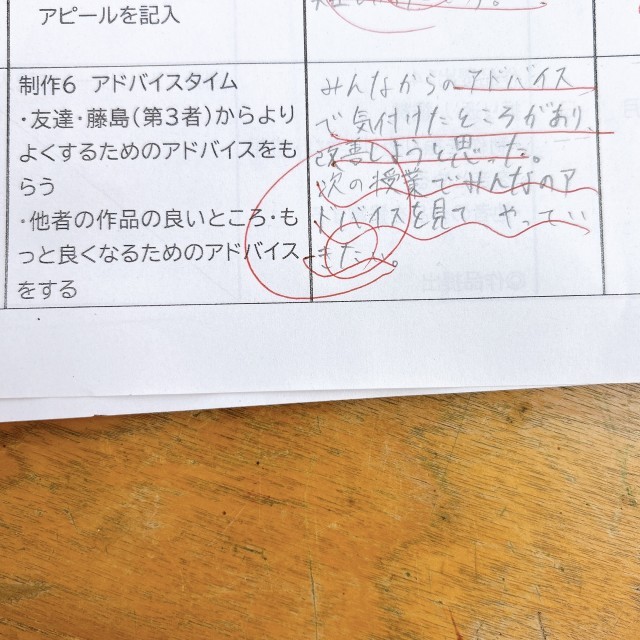 アピールを記入
制作6 アドバイスタイム
・友達・藤島(第3者)からより
よくするためのアドバイスをも
らう
・他者の作品の良いところ・も
っと良くなるためのアドバイス
をする
みんなからのアドバイス
で気付けたところがあり、
改善しようと思った。
次の授業でみんなのア
ドバイスを見て やってい
きたい。